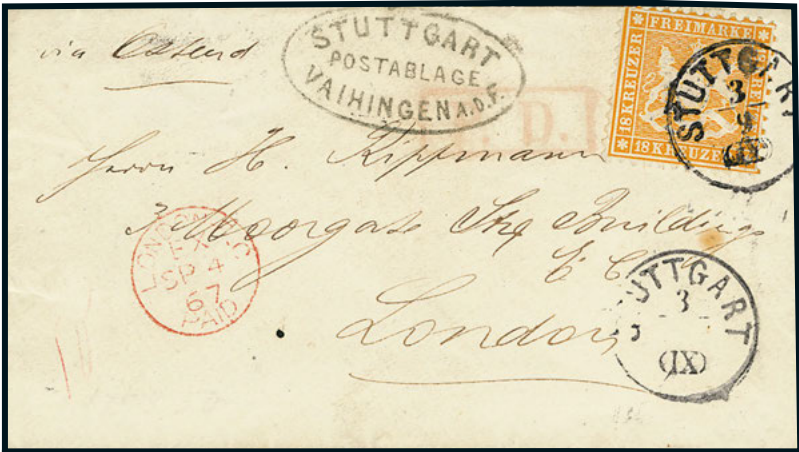 via Ostend
STUTTGART
POSTABLAGE
VAIHINGEN A.D.F.
P.D.
FREIMARKE
18 KREUZER
18 KREUZER
STUTTGART
3
9
(IX)
Herrn H. Kippmann
3 Moorgate Str Buildings
E C
London
LONDON E.C
SP 4
67
PAID
STUTTGART
3
(IX)